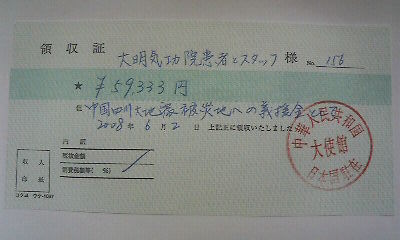 領収証 大明気功院患者とスタッフ 様 No. 156
★ ¥59,333円
但 中国四川大地震被災地への義援金として
2008年6月2日 上記正に領収いたしました
内訳
税抜金額
消費税額等( %)
収入
印紙
コクヨ ウケ-1097
中華人民共和国
大使館
日本国駐在